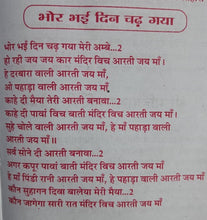 भोर भई दिन चढ़ गया
भोर भई दिन चढ़ गया मेरी अम्बे...2
हो रही जय जय कार मंदिर विच आरती जय माँ।
हे दरबारा वाली आरती जय माँ,
ओ पहाड़ा वाली आरती जय माँ।
काहे दी मैया तेरी आरती बनावा...2
काहे दी पावां विच बाती मंदिर विच आरती जय माँ।
सुहे चोले वाली आरती जय माँ, हे माँ पहाड़ा वाली
आरती जय माँ॥
सर्व सोने दी आरती बनावा...2
अगर कपूर पावां बाती मंदिर विच आरती जय माँ
हे माँ पिंडी रानी आरती जय माँ, हे पहाड़ा वाली आरती जय माँ
कौन सुहागन दिवा बालेया मेरी मैया...2
कौन जागेगा सारी रात मंदिर विच आरती जय माँ।